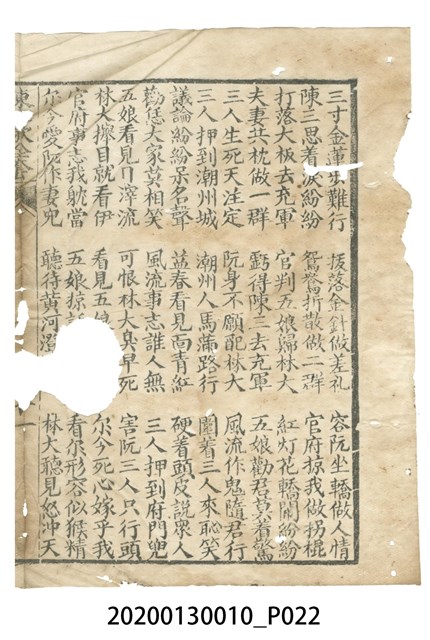 三寸金蓮出難行　扳落金針做差礼　容阮坐轎做人情
陳三思着淚紛紛　鴛鴦折散做二群　官府掠我做拐棍
打落大板去充軍　官判五娘歸林大　紅灯花轎鬧紛紛
夫妻並枕做一群　虧得陳三去充軍　五娘勸君莫着驚
三人生死天注定　阮身不願配林大　風流作鬼隨君行
三人押到潮州城　潮州人馬滿路行　圍着三人來恥笑
議論紛紛是名聲　益春看見面青紅　硬着頭皮說眾人
勸恁大家莫相笑　風流事志誰人無　三人押到府門兜
五娘看見目滓流　可恨林大真早死　害阮三人只行頭
林大擦目就看伊　看見五娘　尔今死心嫁乎我
官府事志我躭當　五娘掠　看尔形容似猴精
尔今愛阮作妻兜　聽待黃河澄　林大聽見怒冲天
20200130010_P022